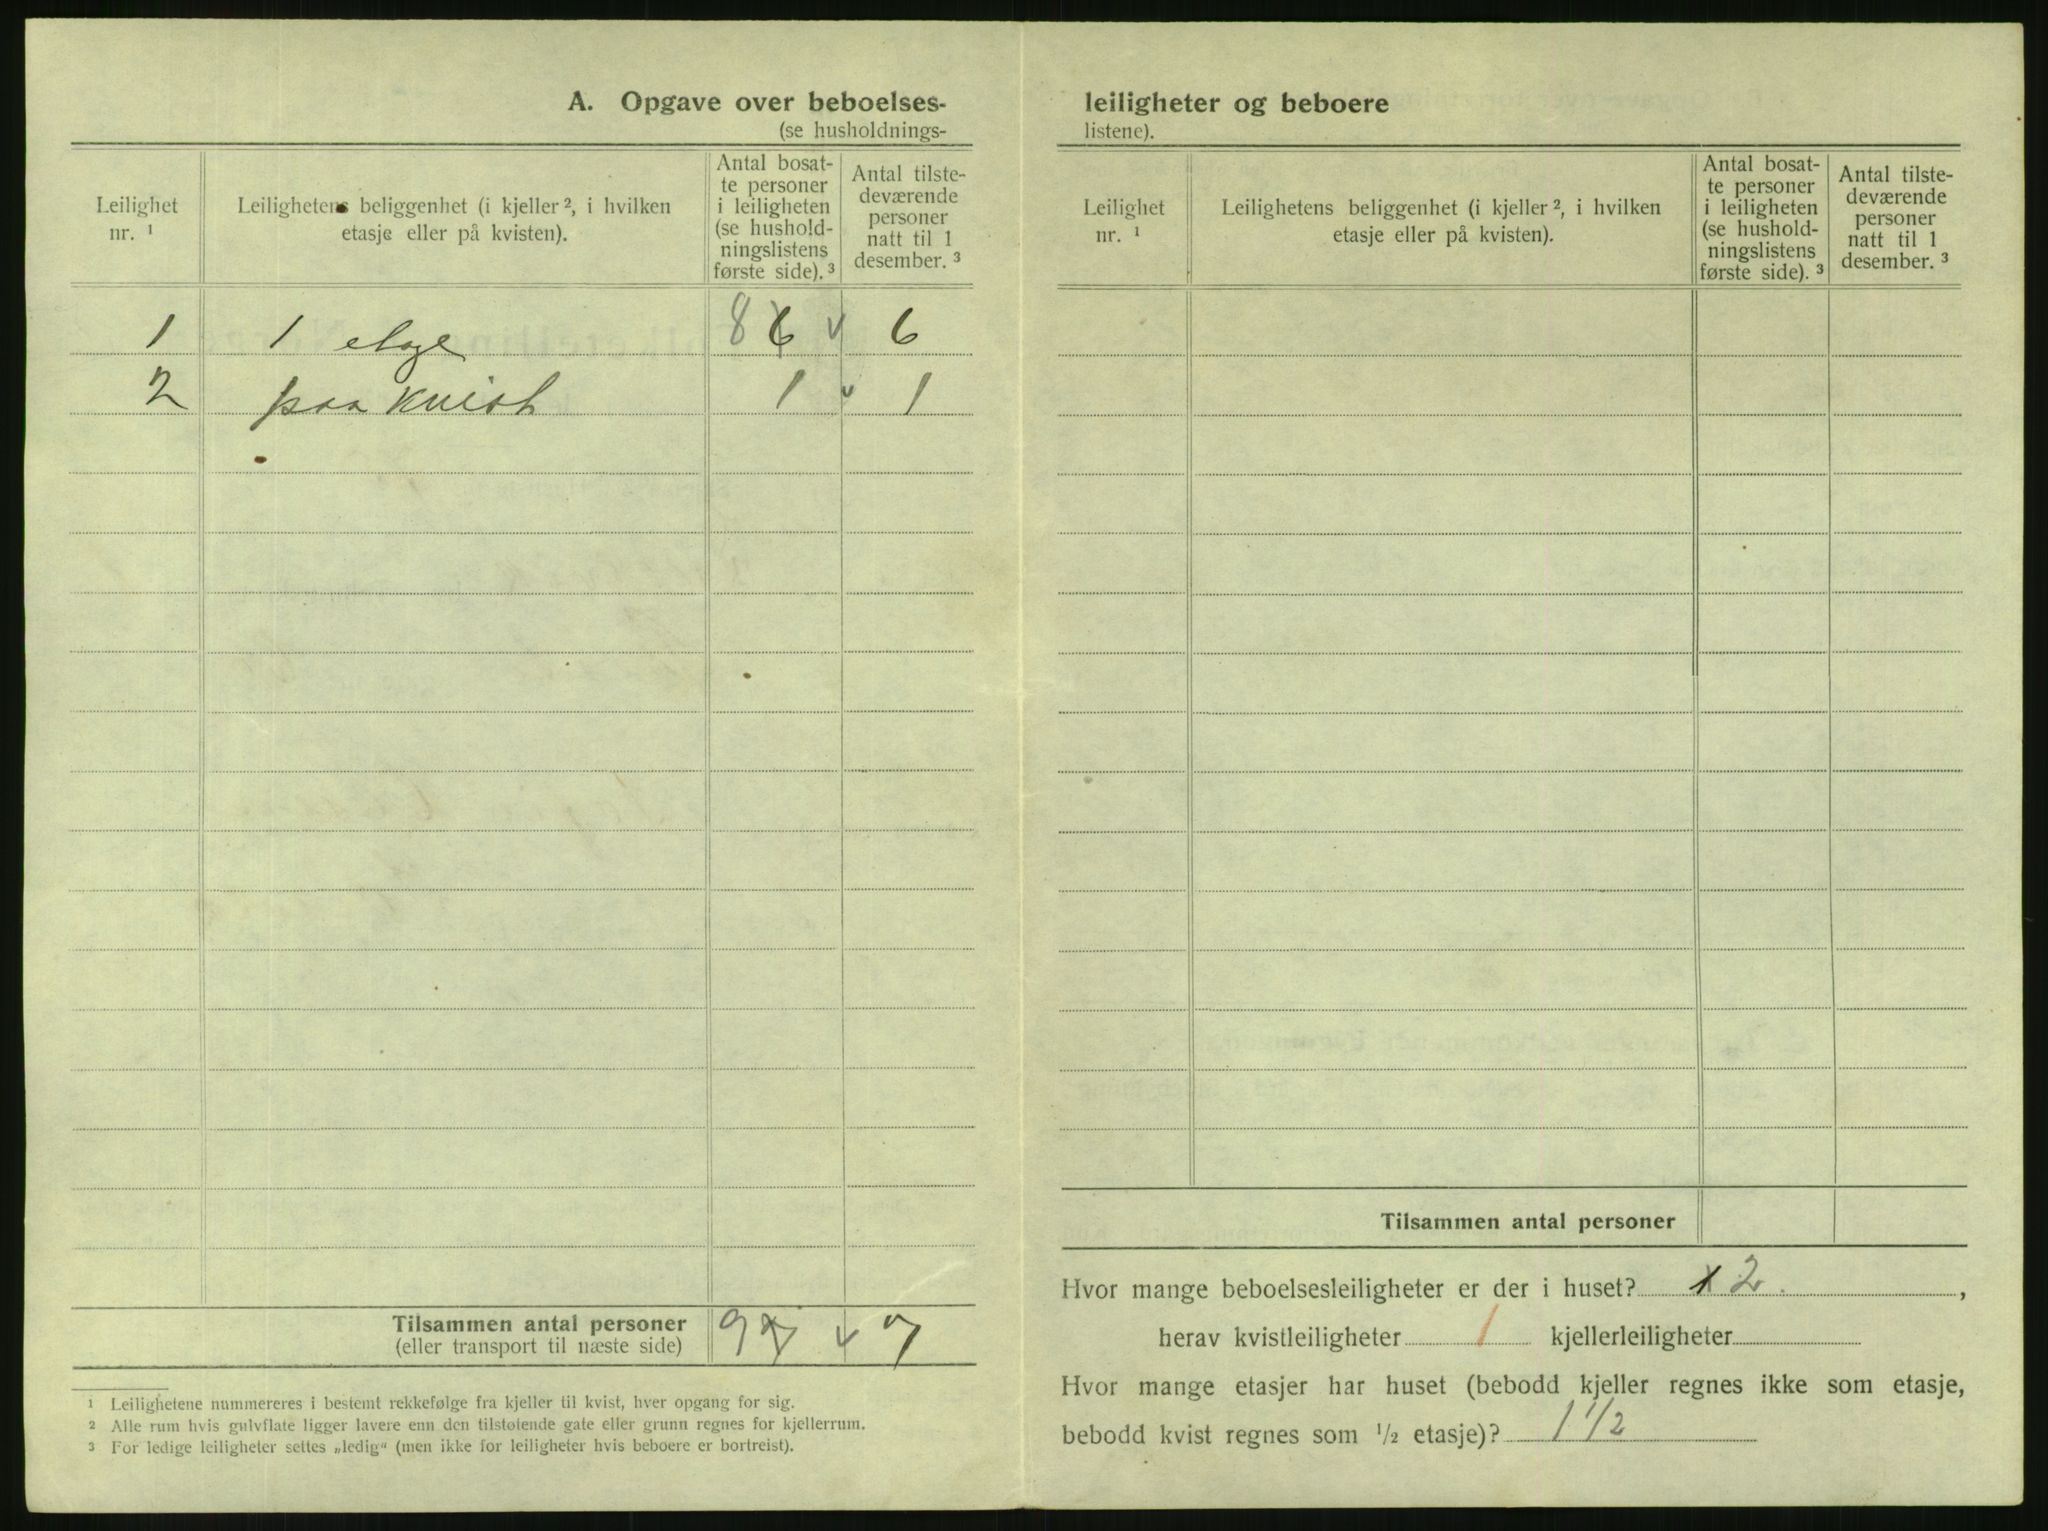 A. Opgave over beboelses-
(se husholdnings-
Leilighet
nr. ¹
Leilighetens beliggenhet (i kjeller ², i hvilken
etasje eller på kvisten).
Antal bosat-
te personer
i leiligheten
(se hushold-
ningslistens
første side). ³
Antal tilste-
deværende
personer
natt til 1
desember. ³
1 1 etage 8 6 v 6
2 paa kvist 1 v 1
Tilsammen antal personer 9 7 v 7
(eller transport til næste side)
¹ Leilighetene nummereres i bestemt rekkefølge fra kjeller til kvist, hver opgang for sig.
² Alle rum hvis gulvflate ligger lavere enn den tilstøtende gate eller grunn regnes for kjellerrum.
³ For ledige leiligheter settes „ledig“ (men ikke for leiligheter hvis beboere er bortreist).
leiligheter og beboere
listene).
Leilighet
nr. ¹
Leilighetens beliggenhet (i kjeller ², i hvilken
etasje eller på kvisten).
Antal bosat-
te personer
i leiligheten
(se hushold-
ningslistens
første side). ³
Antal tilste-
deværende
personer
natt til 1
desember. ³
Tilsammen antal personer
Hvor mange beboelsesleiligheter er der i huset? 1 2 ,
herav kvistleiligheter 1 kjellerleiligheter
Hvor mange etasjer har huset (bebodd kjeller regnes ikke som etasje,
bebodd kvist regnes som ½ etasje)? 1 1/2